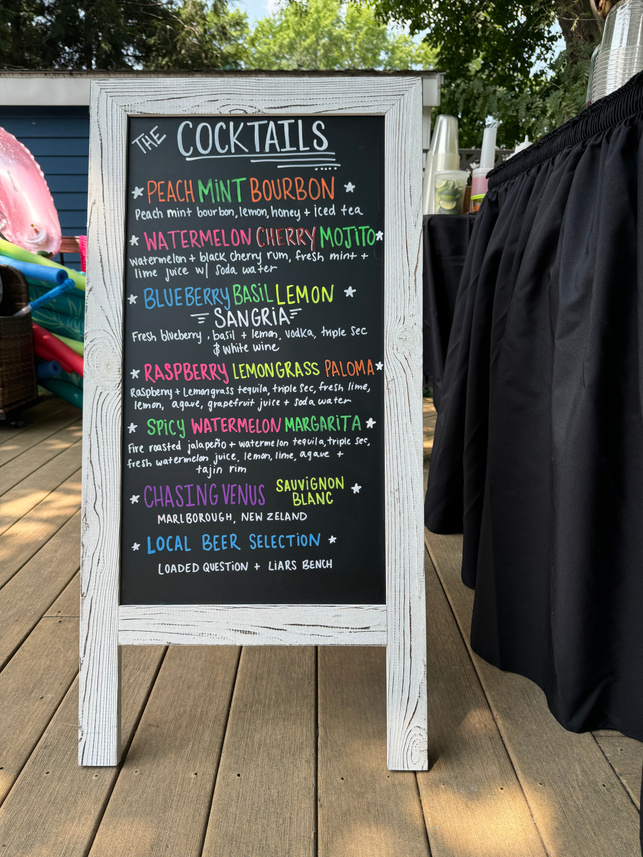 THE COCKTAILS
PEACH MINT BOURBON
Peach mint bourbon, lemon, honey + iced tea
WATERMELON CHERRY MOJITO
watermelon + black cherry rum, fresh mint +
lime juice w/ soda water
BLUEBERRY BASIL LEMON
SANGRIA
Fresh blueberry, basil + lemon, vodka, triple sec
& white wine
RASPBERRY LEMONGRASS PALOMA
Raspberry + Lemongrass tequila, triple sec, fresh lime,
lemon, agave, grapefruit juice + soda water
SPICY WATERMELON MARGARITA
Fire roasted jalapeño + watermelon tequila, triple sec,
fresh watermelon juice, lemon, lime, agave +
tajin rim
CHASING VENUS SAUVIGNON
BLANC
MARLBOROUGH, NEW ZELAND
LOCAL BEER SELECTION
LOADED QUESTION + LIARS BENCH